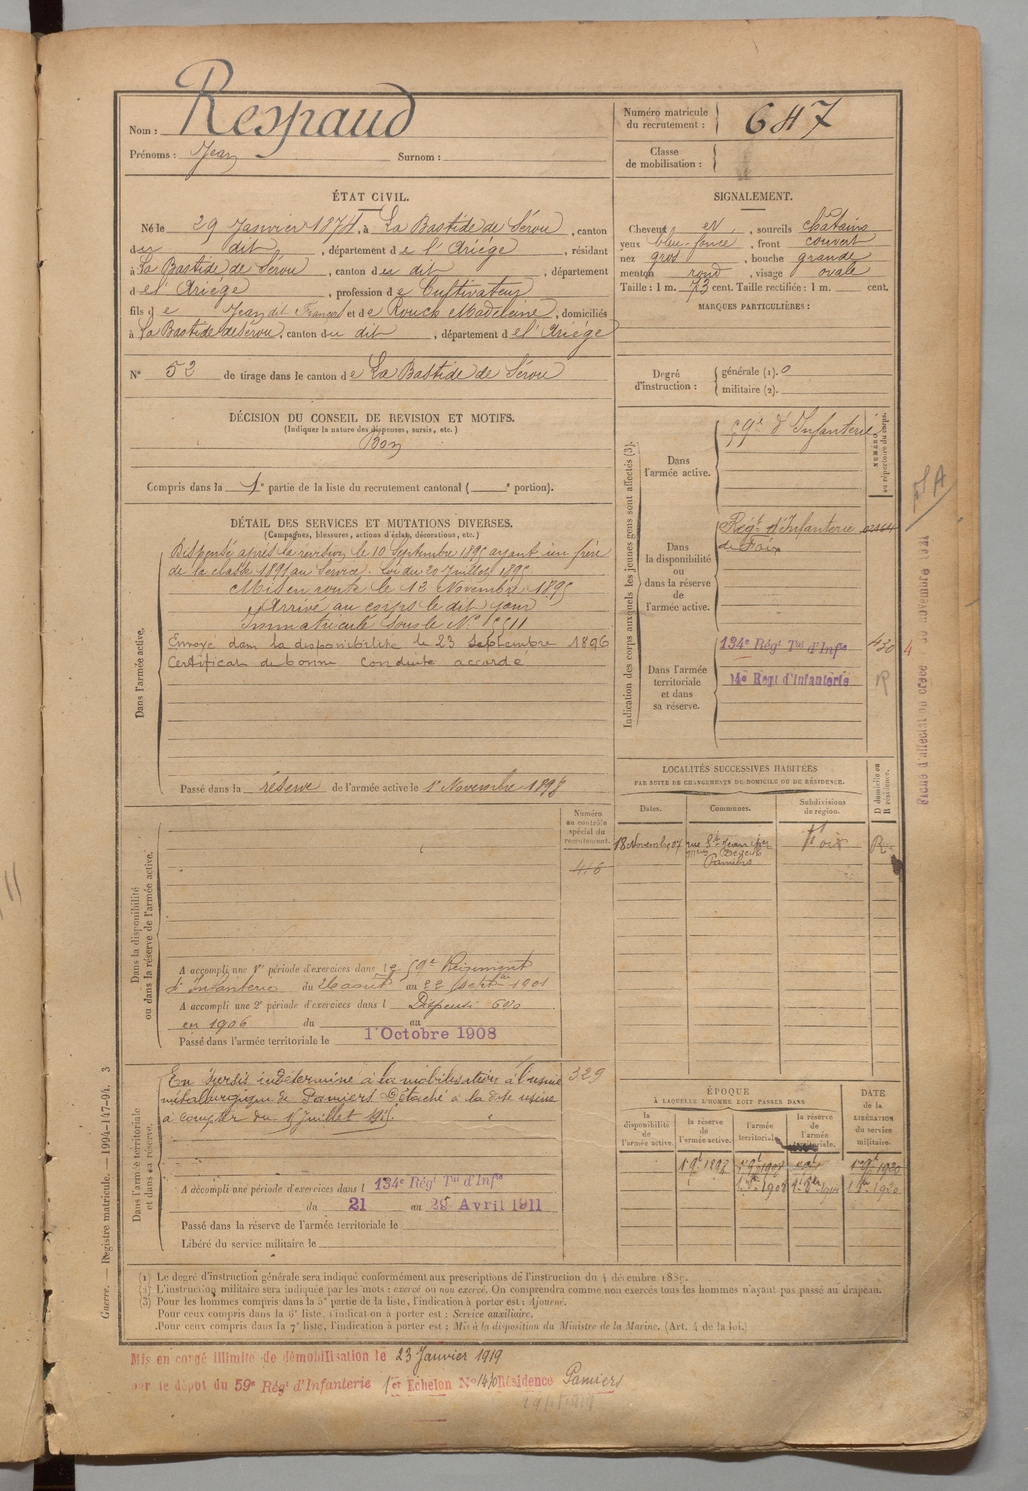 Nom : Respaud
Prénoms : Jean Surnom :
Numéro matricule du recrutement : 647
Classe de mobilisation :
ÉTAT CIVIL.
Né le 29 Janvier 1874, à La Bastide de Sérou, canton
du dit, département de l'Ariège, résidant
à La Bastide de Sérou, canton du dit, département
de l'Ariège, profession de Cultivateur
fils de Jean dit François et de Rouch Madeleine, domiciliés
à La Bastide de Sérou, canton du dit, département de l'Ariège
N° 52 de tirage dans le canton de La Bastide de Sérou
SIGNALEMENT.
Cheveux et, sourcils châtains
yeux bleu foncé, front couvert
nez gros, bouche grande
menton rond, visage ovale
Taille : 1 m. 73 cent. Taille rectifiée : 1 m. cent.
MARQUES PARTICULIÈRES :
Degré d'instruction : générale (1). 0
militaire (2).
DÉCISION DU CONSEIL DE REVISION ET MOTIFS.
(Indiquer la nature des dispenses, sursis, etc.)
Bon
Compris dans la 1e partie de la liste du recrutement cantonal ( e portion).
DÉTAIL DES SERVICES ET MUTATIONS DIVERSES.
(Campagnes, blessures, actions d'éclat, décorations, etc.)
Dans l'armée active.
Dispensé après la revision le 10 Septembre 1895 ayant un frère
de la classe 1891 au Service. Loi du 20 Juillet 1895
Mis en route le 13 Novembre 1895
Arrivé au corps le dit jour
Immatriculé sous le N°
Envoyé dans la disponibilité le 23 Septembre 1896
Certificat de bonne conduite accordé
Passé dans la réserve de l'armée active le 1er Novembre 1898
Indication des corps auxquels les jeunes gens sont affectés (3).
NUMÉRO au répertoire du corps.
Dans l'armée active.
59e d'Infanterie
Dans la disponibilité ou dans la réserve de l'armée active.
Régt d'Infanterie
de Foix
Dans l'armée territoriale et dans sa réserve.
134e Régt Tal d'Infie
14e Régt d'Infanterie
R
LOCALITÉS SUCCESSIVES HABITÉES
PAR SUITE DE CHANGEMENTS DE DOMICILE OU DE RÉSIDENCE.
D domicile ou R résidence.
Dates. Communes. Subdivisions de région.
18 Novembre 07 rue St Jean
Pamiers Foix R.
Dans la disponibilité ou dans la réserve de l'armée active.
Numéro au contrôle spécial du recrutement.
416
A accompli une 1re période d'exercices dans le 59e Régiment
d'Infanterie du 26 août au 22 Septbre 1901
A accompli une 2e période d'exercices dans l Dispensé
en 1906 du au
Passé dans l'armée territoriale le 1er Octobre 1908
Dans l'armée territoriale et dans sa réserve.
En sursis indéterminé à la mobilisation à l'usine
métallurgique de Pamiers Détaché à la dite usine
à compter du 1er Juillet
329
A accompli une période d'exercices dans l 134e Régt Tal d'Infie
du 21 au 29 Avril 1911
Passé dans la réserve de l'armée territoriale le
Libéré du service militaire le
ÉPOQUE
À LAQUELLE L'HOMME DOIT PASSER DANS
la disponibilité de l'armée active.
la réserve de l'armée active.
l'armée territoriale.
la réserve de l'armée territoriale.
DATE de la LIBÉRATION du service militaire.
(1) Le degré d'instruction générale sera indiqué conformément aux prescriptions de l'instruction du 4 décembre
(2) L'instruction militaire sera indiquée par les mots : exercé ou non exercé. On comprendra comme non exercés tous les hommes n'ayant pas passé au drapeau.
(3) Pour les hommes compris dans la 5e partie de la liste, l'indication à porter est : Ajourné.
Pour ceux compris dans la 6e liste, l'indication à porter est : Service auxiliaire.
Pour ceux compris dans la 7e liste, l'indication à porter est : Mis à la disposition du Ministre de la Marine. (Art. 4 de la loi.)
Guerre. — Registre matricule. — 1994-147-94. 3
Mis en congé illimité de démobilisation le 23 Janvier 1919
par le dépôt du 59e Régt d'Infanterie 1er Echelon N° Résidence Pamiers